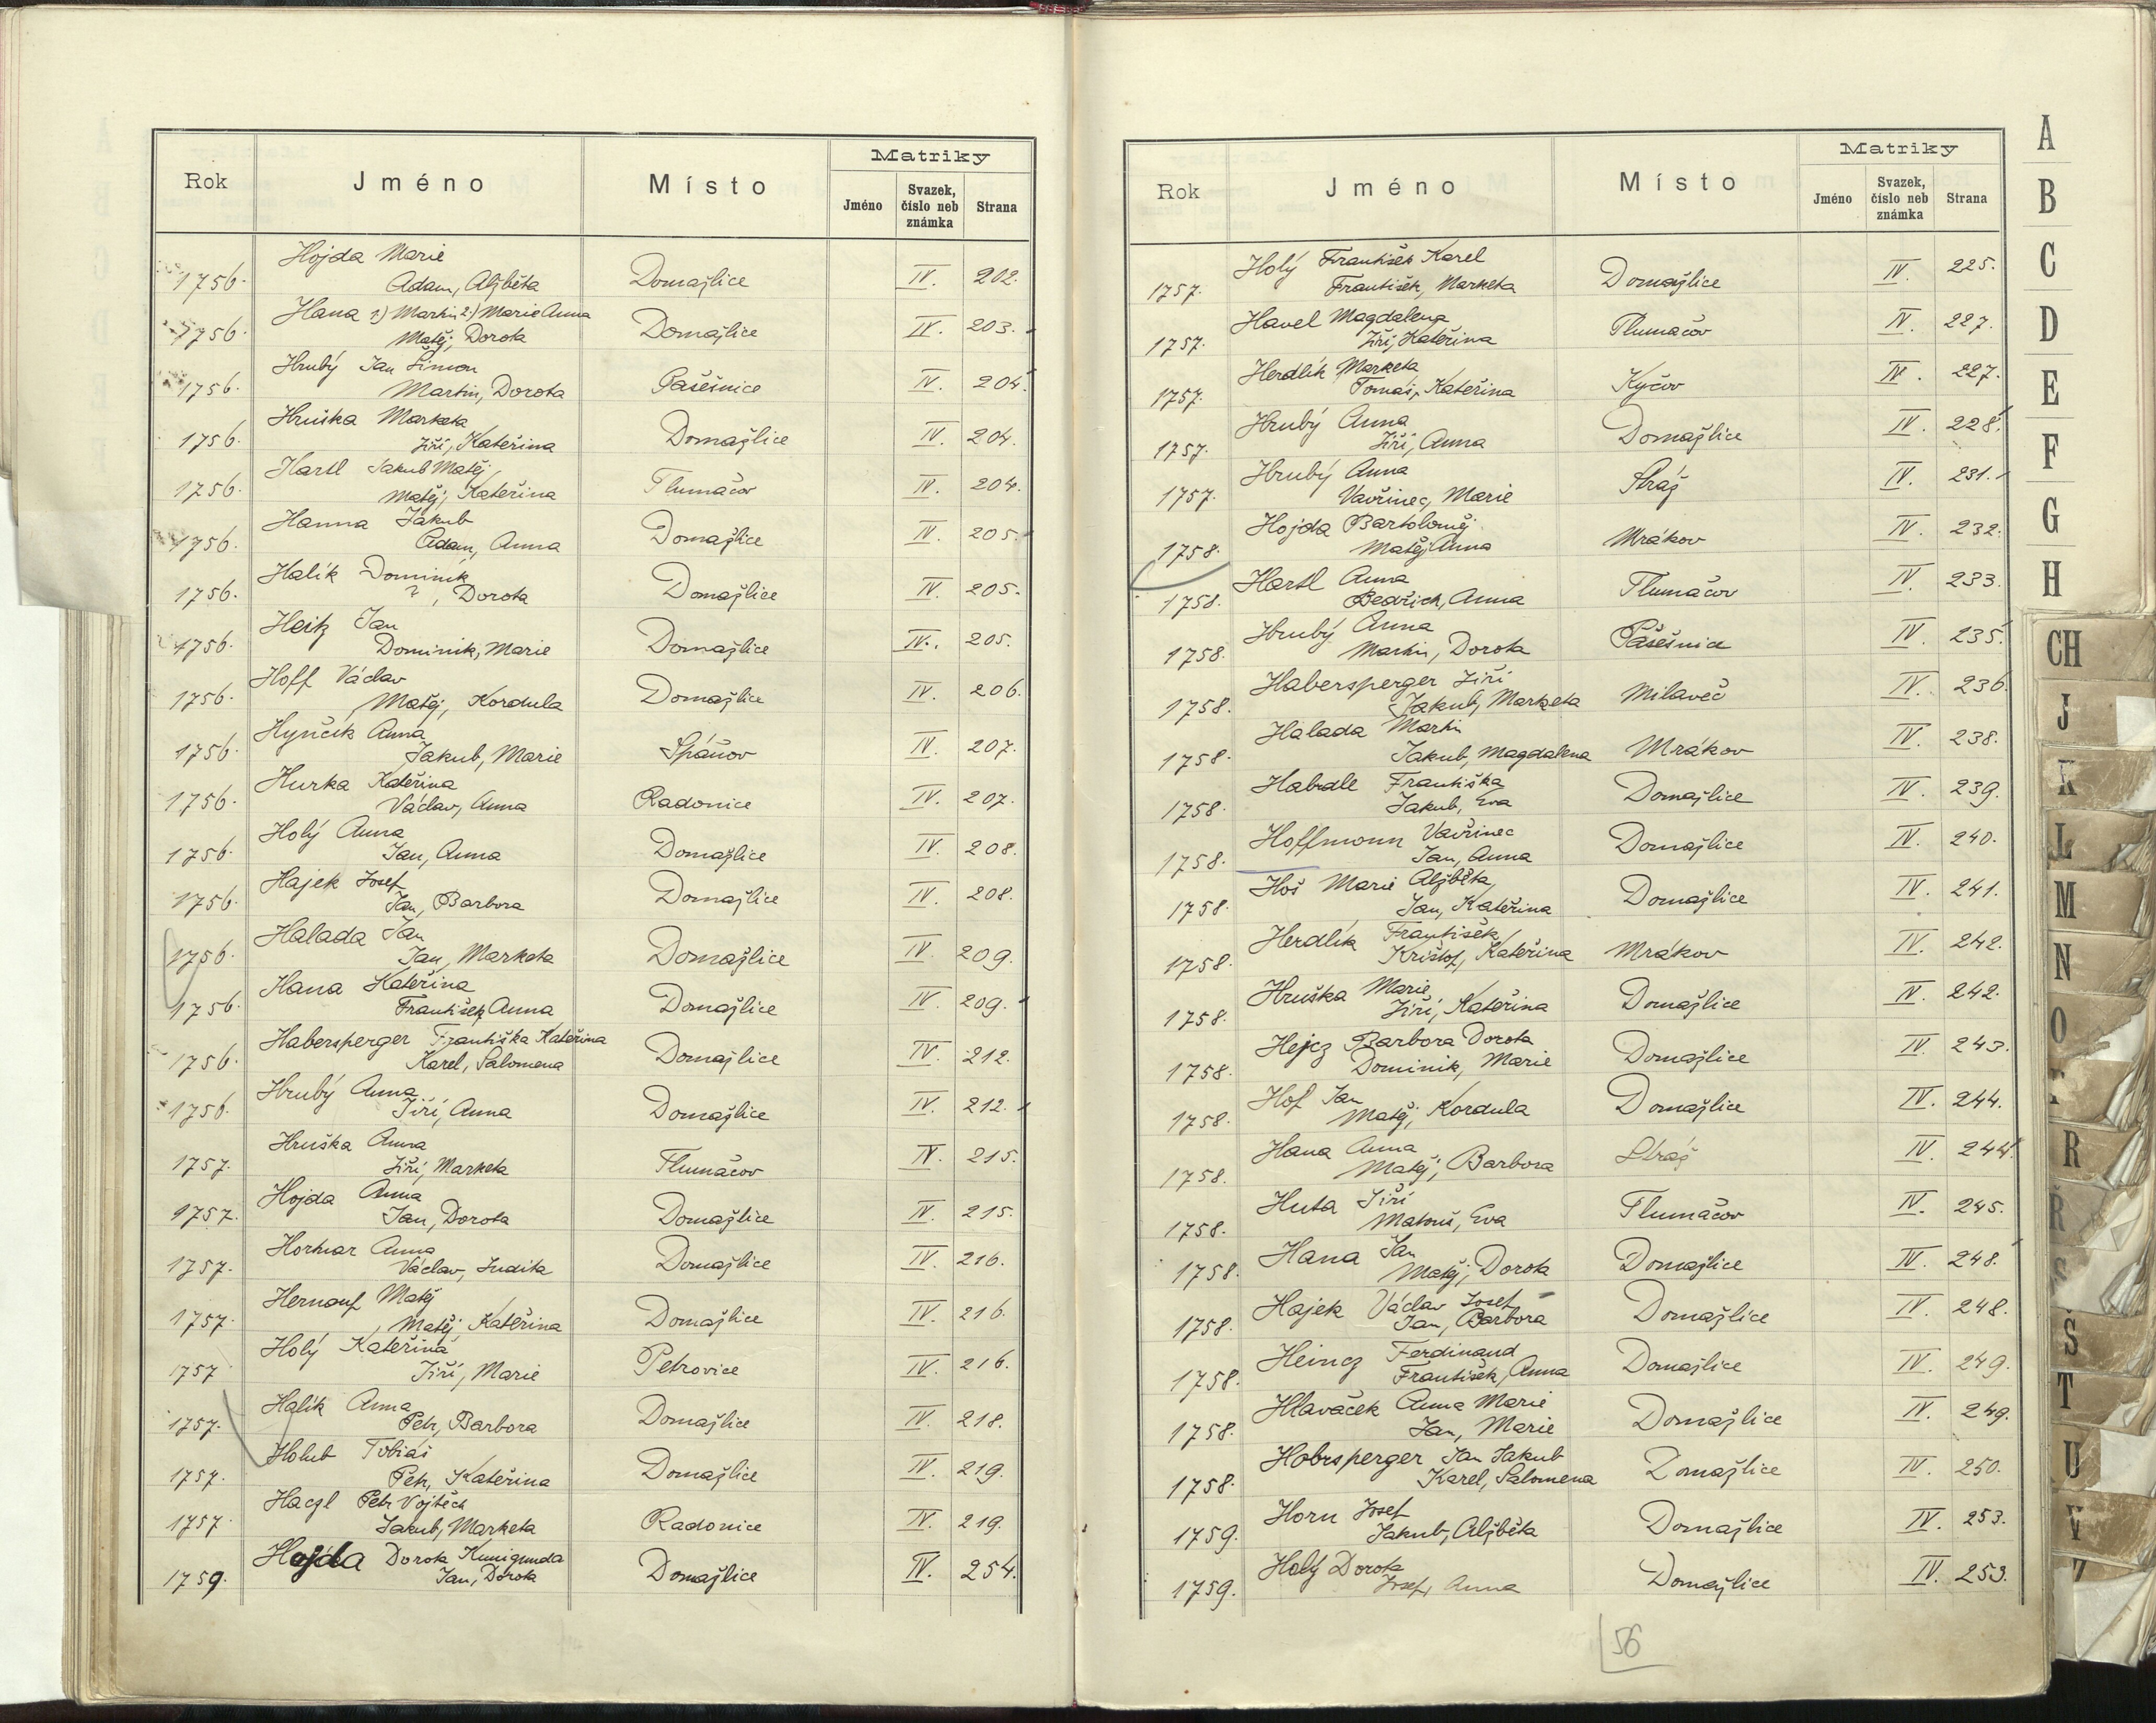 Matriky
Rok Jméno Místo Jméno Svazek, číslo neb známka Strana
Hojda Marie
1756. Adam, Alžběta Domažlice IV. 202.
Hana 1.) Martin 2.) Marie Anna
1756. Matěj, Dorota Domažlice IV. 203.
Hrubý Jan Šimon
1756. Martin, Dorota Pašešnice IV. 204.
Hruška Marketa
1756. Jiří, Kateřina Domažlice IV. 204.
Hartl Jakub Matěj
1756. Matěj, Kateřina Tlumačov IV. 204.
Hanna Jakub
1756. Adam, Anna Domažlice IV. 205.
Halík Dominik
1756. ?, Dorota Domažlice IV. 205.
Heitz Jan
1756. Dominik, Marie Domažlice IV. 205.
Hoff Václav
1756. Matěj, Kordula Domažlice IV. 206.
Hynčík Anna
1756. Jakub, Marie Spáňov IV. 207.
Hurka Kateřina
1756. Václav, Anna Radonice IV. 207.
Holý Anna
1756. Jan, Anna Domažlice IV. 208.
Hajek Josef
1756. Jan, Barbora Domažlice IV. 208.
Halada Jan
1756. Jan, Marketa Domažlice IV. 209.
Hana Kateřina
1756. František, Anna Domažlice IV. 209.
Habersperger Františka Kateřina
1756. Karel, Salomena Domažlice IV. 212.
Hrubý Anna
1756. Jiří, Anna Domažlice IV. 212.
Hruška Anna
1757. Jiří, Marketa Tlumačov IV. 215.
Hojda Anna
1757. Jan, Dorota Domažlice IV. 215.
Horhar Anna
1757. Václav, Judita Domažlice IV. 216.
Hernauf Matěj
1757. Matěj, Kateřina Domažlice IV. 216.
Holý Kateřina
1757 Jiří, Marie Petrovice IV. 216.
Halík Anna
1757. Petr, Barbora Domažlice IV. 218.
Holub Tobiáš
1757. Petr, Kateřina Domažlice IV. 219.
Haczl Petr Vojtěch
1757. Jakub, Marketa Radonice IV. 219.
Hojda Dorota Kunigunda
1759. Jan, Dorota Domažlice IV. 254.
Matriky
Rok Jméno Místo Jméno Svazek, číslo neb známka Strana
Holý František Karel
1757. František, Marketa Domažlice IV. 225.
Havel Magdalena
1757. Jiří, Kateřina Tlumačov IV. 227.
Herdlík Marketa
1757. Tomáš, Kateřina Kyčov IV. 227.
Hrubý Anna
1757. Jiří, Anna Domažlice IV. 228.
Hrubý Anna
1757. Vavřinec, Marie Stráž IV. 231.
Hojda Bartoloměj
1758. Matěj Anna Mrákov IV. 232.
Hartl Anna
1758. Bedřich, Anna Tlumačov IV. 233.
Hrubý Anna
1758. Martin, Dorota Pašešnice IV. 235.
Habersperger Jiří
1758. Jakub, Marketa Milaveč IV. 236.
Halada Martin
1758. Jakub, Magdalena Mrákov IV. 238.
Habdle Františka
1758. Jakub, Eva Domažlice IV. 239.
Hoffmonn Vavřinec
1758. Jan, Anna Domažlice IV. 240.
Hoš Marie Alžběta
1758. Jan, Kateřina Domažlice IV. 241.
Herdlík František
1758. Krištof, Kateřina Mrákov IV. 242.
Hruška Marie
1758. Jiří, Kateřina Domažlice IV. 242.
Hejcz Barbora Dorota
1758. Dominik, Marie Domažlice IV. 243.
Hof Jan
1758. Matěj, Kordula Domažlice IV. 244.
Hana Anna
1758. Matěj, Barbora Stráž IV. 244.
Huta Jiří
1758. Matouš, Eva Tlumačov IV. 245.
Hana Jan
1758. Matěj, Dorota Domažlice IV. 248.
Hajek Václav Josef
1758. Jan, Barbora Domažlice IV. 248.
Heincz Ferdinand
1758. František, Anna Domažlice IV. 249.
Hlaváček Anna Marie
1758. Jan, Marie Domažlice IV. 249.
Hobrsperger Jan Jakub
1758. Karel, Salomena Domažlice IV. 250.
Horn Josef
1759. Jakub, Alžběta Domažlice IV. 253.
Holý Dorota
1759. Josef, Anna Domažlice IV. 253.
56
A
B
C
D
E
F
G
H
CH
J
K
L
M
N
O
R
Ř
S
Š
T
U
V